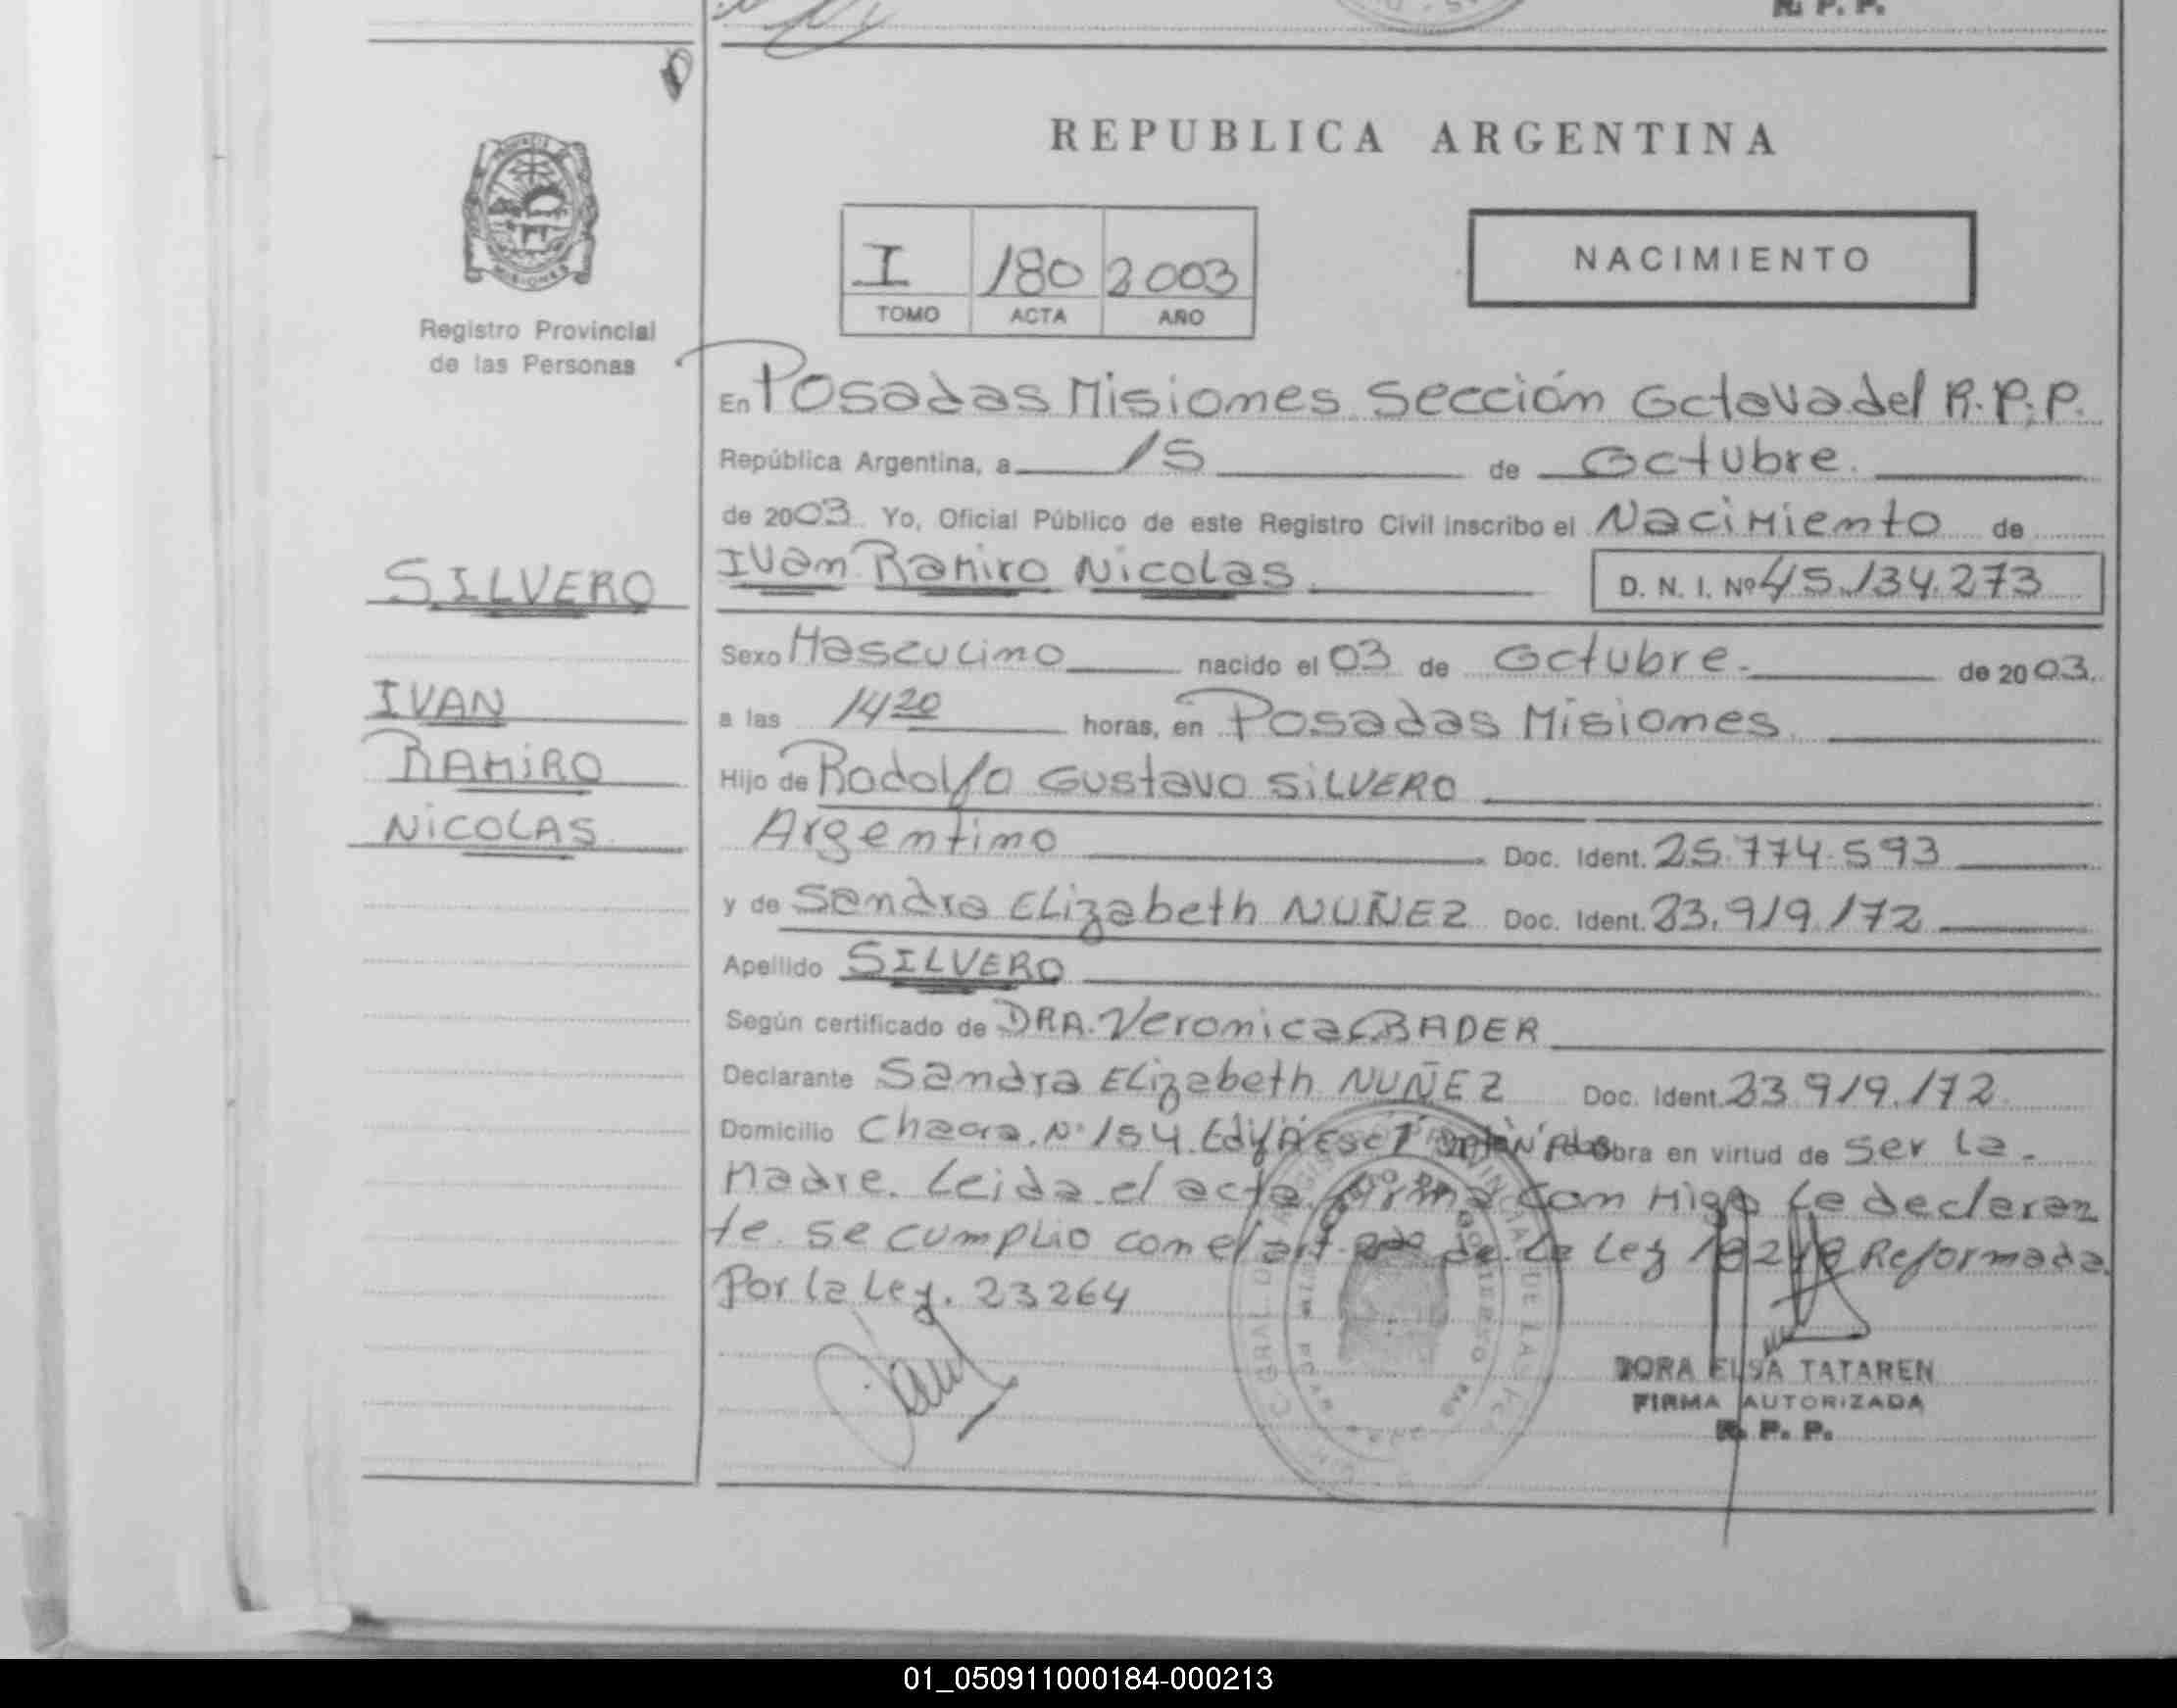 R. P. P.
REPUBLICA ARGENTINA
MISIONES
Registro Provincial
de las Personas
I 180 2003
TOMO ACTA AÑO
NACIMIENTO
En Posadas Misiones Sección Octava del R.P.P.
República Argentina, a 15 de Octubre.
de 2003 Yo, Oficial Público de este Registro Civil inscribo el Nacimiento de
Ivan Ramiro Nicolas D. N. I. Nº 45.134.273
SILVERO
IVAN
RAMIRO
NICOLAS
Sexo Masculino nacido el 03 de Octubre. de 2003.
a las 14 20 horas, en Posadas Misiones.
Hijo de Rodolfo Gustavo SILVERO
Argentino Doc. Ident. 25.774.593
y de Sandra Elizabeth NUÑEZ Doc. Ident. 23.919.172
Apellido SILVERO
Según certificado de DRA. Veronica BADER
Declarante Sandra Elizabeth NUÑEZ Doc. Ident. 23.919.172
Domicilio Chacra. Nº 154. Edif A Esc 1 obra en virtud de ser la
Madre. Leida el acta firma con migo la declaran
te. se cumplio con el art. de la Ley 18248 Reformada
Por la Ley. 23264
DORA ELSA TATAREN
FIRMA AUTORIZADA
R. P. P.
01_050911000184-000213